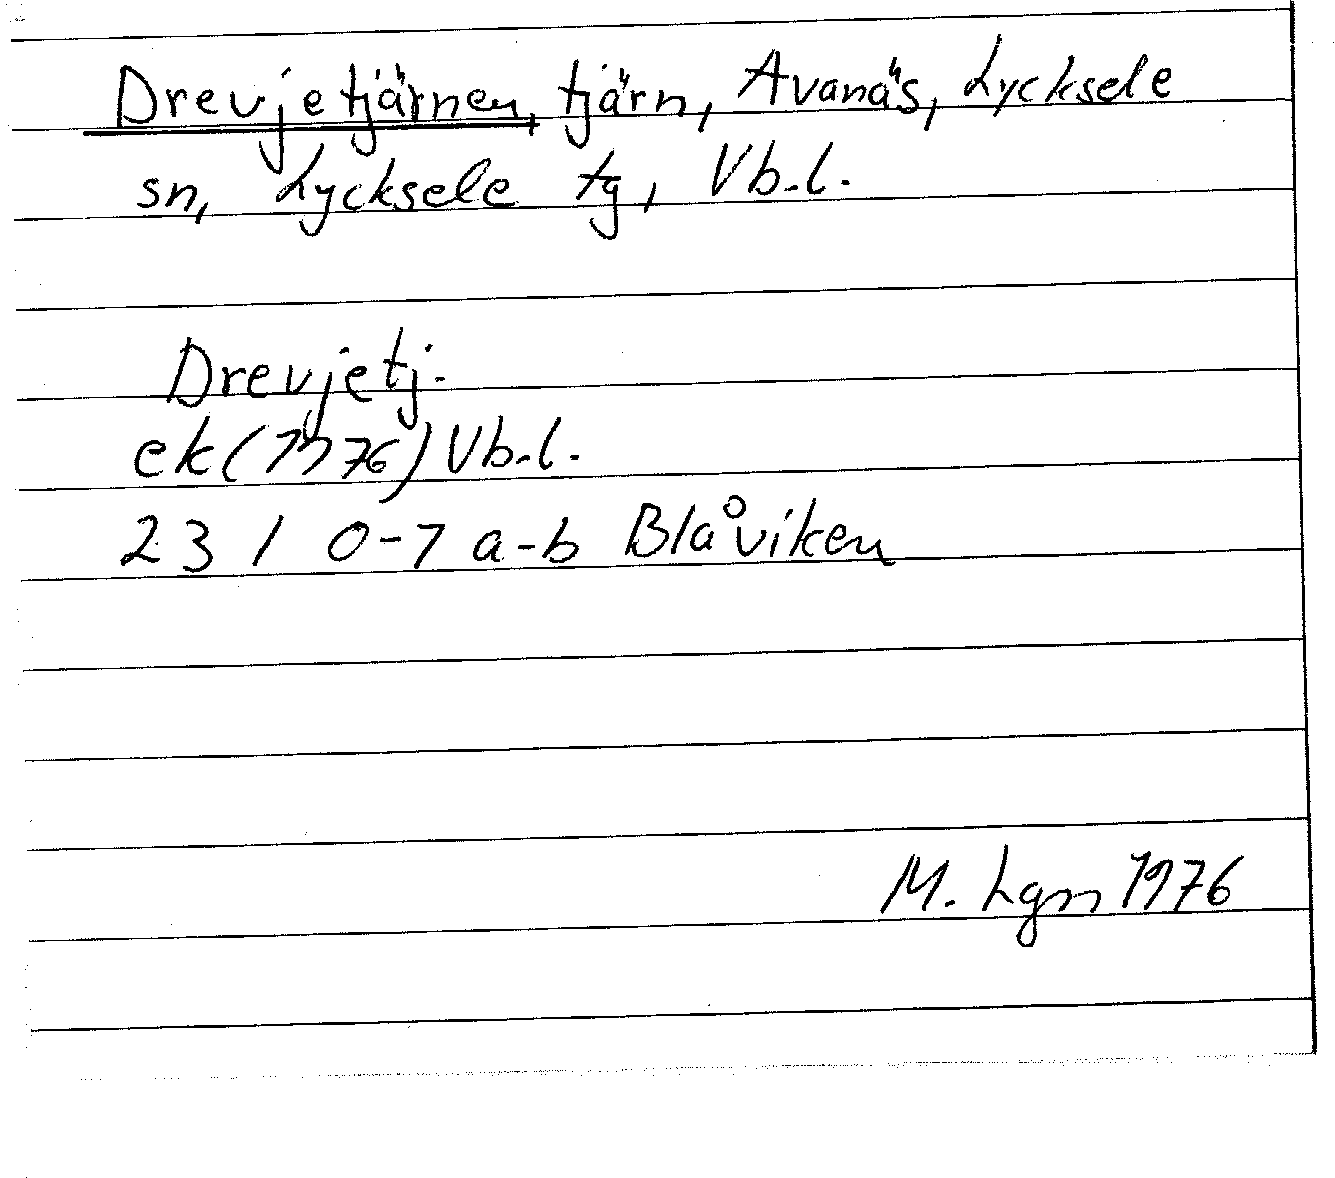 Drevjetjärnen, tjärn, Avanäs, Lycksele
sn, Lycksele tg, Vb.l.
Drevjetj.
ek (1976) Vb.l.
23 I 0-7 a-b Blåviken
M. Lgm 1976